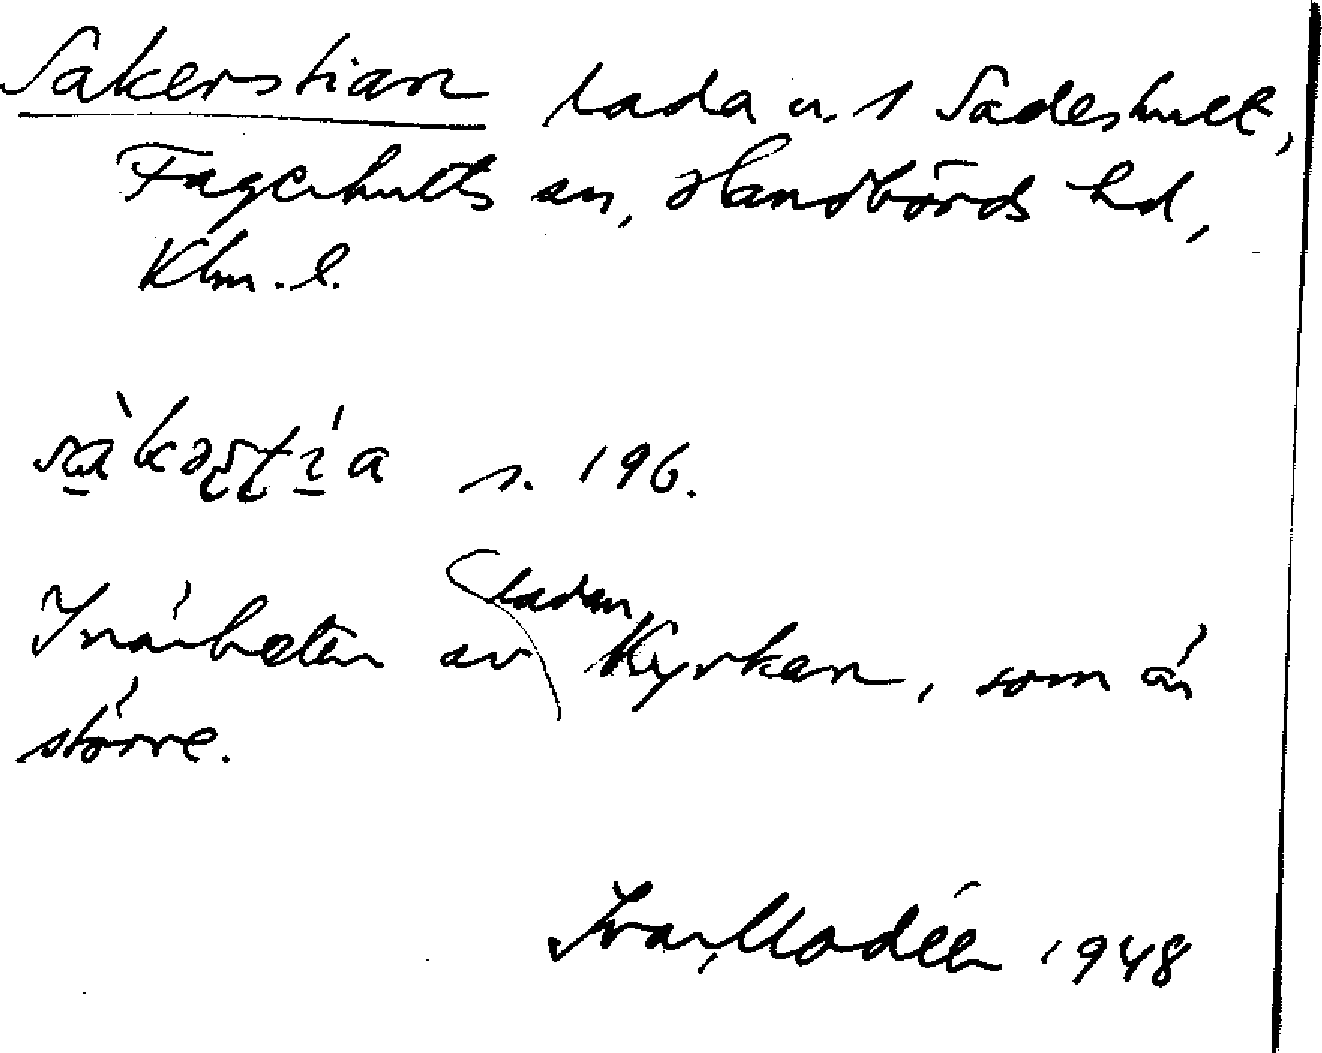 Sakerstian lada u. 1 Sadeshult,
Fagerhults sn, Handbörds hd,
Klm. l.
s. 196.
I närheten av ladan Kyrkan, som är
större.
Ivar Modéer 1948